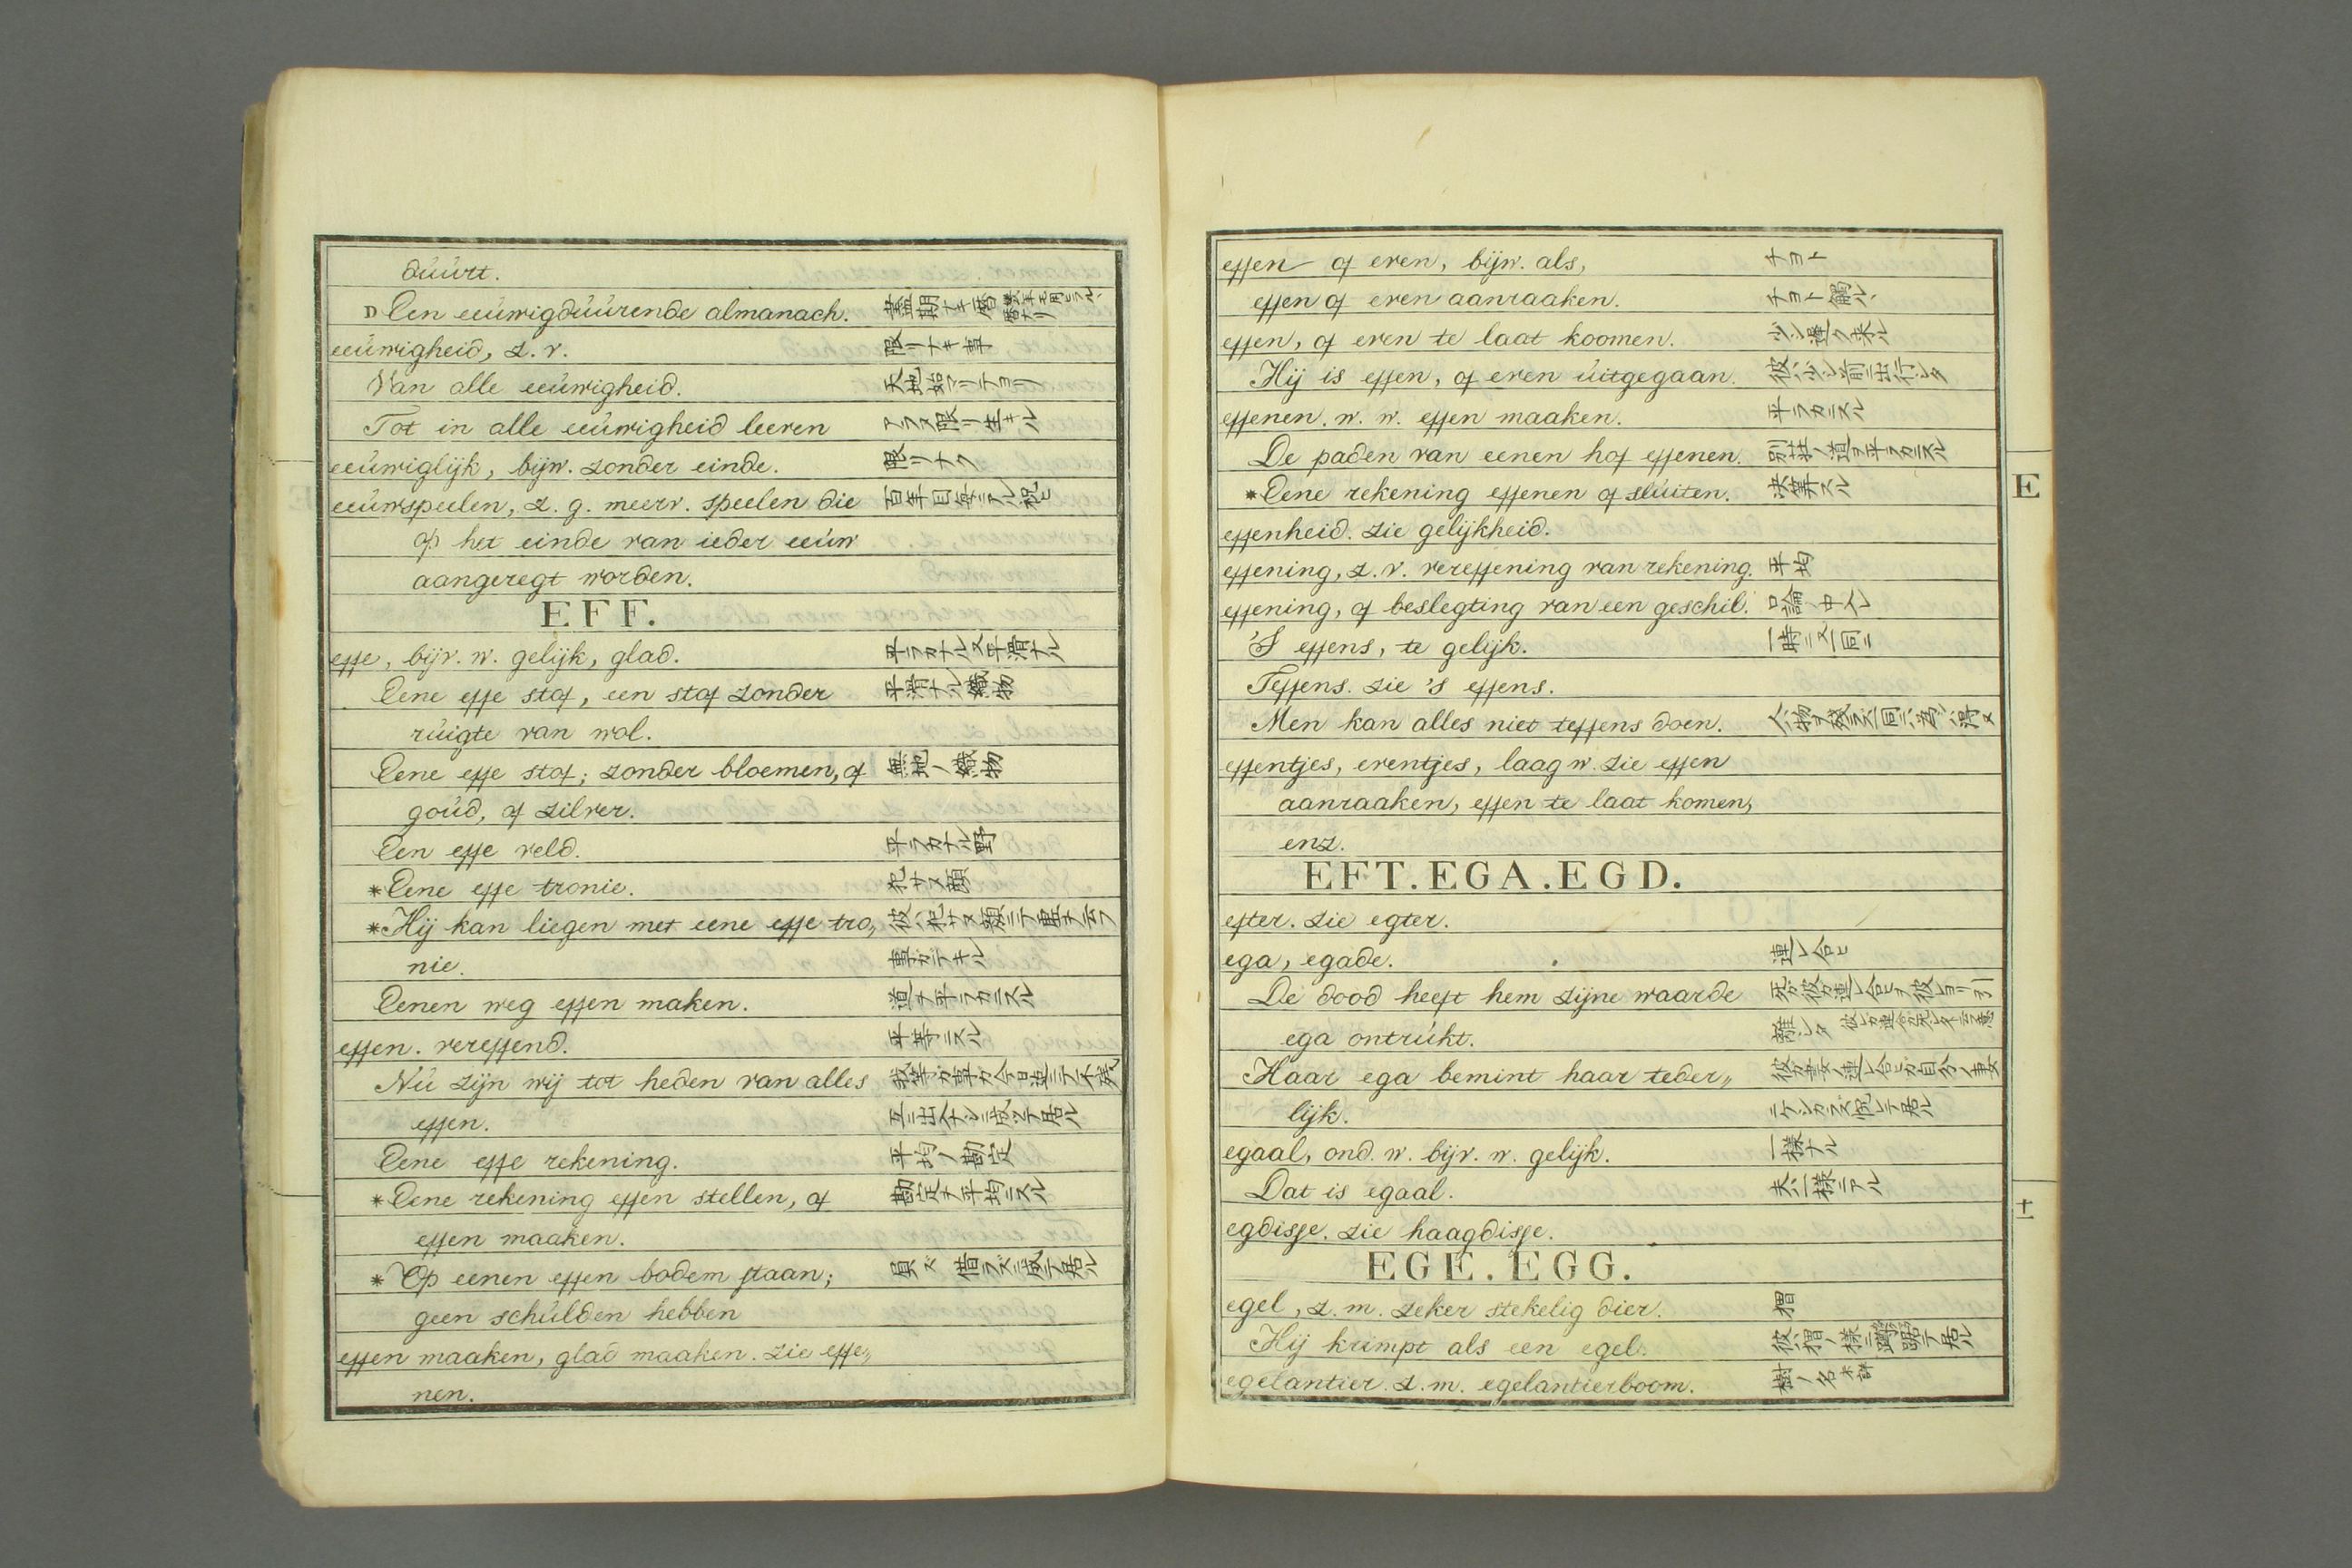 duurt.
D Een eeuwigduurende almanach.
eeuwigheid, z. v. 限リナキ事
Van alle eeuwigheid. 天地始マリテヨリ
Tot in alle eeuwigheid leeven アラヌ限リ生キル
eeuwiglijk, bijw. zonder einde. 限リナク
eeuwspeelen, z. g. meerv. speelen die 百年目毎ニアル祝ヒ
op het einde van ieder eeuw
aangeregt worden.
EFF.
effe, bijv. w. gelijk, glad. 平ラカナル又平滑ナル
Eene effe stof, een stof zonder 平滑ナル織物
ruigte van wol.
Eene effe stof; zonder bloemen, of 無地ノ織物
goud, of zilver.
Een effe veld. 平ラカナル野
*Eene effe tronie. 犯サヌ顔
*Hij kan liegen met eene effe tro„ 彼ハ犯サヌ顔ニテ虚ヲ云フ
nie. 事ガデキル
Eenen weg effen maken. 道ヲ平ラカニスル
effen. vereffend. 平等ニスル
Nu zijn wij tot heden van alles
effen.
Eene effe rekening. 平均ノ勘定
*Eene rekening effen stellen, of 勘定ヲ平均ニスル
effen maaken.
*Op eenen effen bodem staan;
geen schulden hebben
effen maaken, glad maaken. zie effe„
nen.
effen of even, bijw. als, チョト
effen of even aanraaken. チョト觸ル
effen, of even te laat koomen. 少シ遲ク来ル
Hij is effen, of even uitgegaan. 彼ハ少シ前ニ出行シタ
effenen. w. w. effen maaken. 平ラカニスル
De paden van eenen hof effenen. 別荘ノ道ヲ平ラカニスル
*Eene rekening effenen of sluiten. 决算スル
effenheid. zie gelijkheid.
effening, z. v. vereffening van rekening. 平均
effening, of beslegting van een geschil. 口論ノ中人
'S effens, te gelijk. 一時ニ又一同ニ
Teffens. zie 'S effens.
Men kan alles niet teffens doen.
effentjes, eventjes, laag w. zie effen
aanraaken, effen te laat komen,
enz.
EFT. EGA. EGD.
efter. zie egter.
ega, egade. 連レ合ヒ
De dood heeft hem zijne waarde 死ガ彼ガ連レ合ヒヲ彼ヨリ引
ega ontrukt.
Haar ega bemint haar teder„
lijk.
egaal, ond. w. bijv. w. gelijk. 一様ナル
Dat is egaal. 夫ハ一様ニアル
egdisse. zie haagdisse.
EGE. EGG.
egel, z. m. zeker stekelig dier. 猬
Hij krimpt als een egel.
egelantier. z. m. egelantierboom. 樹ノ名
E
十一